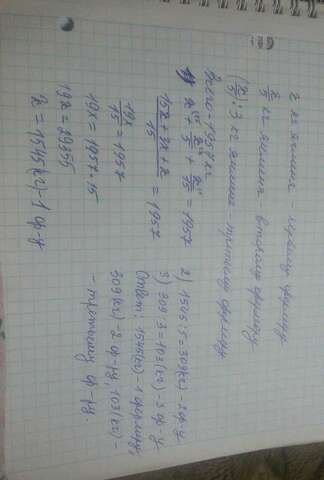 x кг ячменя - первому фермеру
x/5 кг ячменя второму фермеру
(x/5):3 кг ячменя - третьему фермеру
Всего - 1957 кг
1) x^15 + x^3/5 + x^1/15 = 1957
15x+3x+x/15 = 1957
19x/15 = 1957
19x = 1957·15
19x = 29355
x = 1545(кг) - 1 ф-у
2) 1545:5=309(кг) - 2 ф-у
3) 309:3=103(кг) - 3 ф-у
Ответ: 1545(кг) - 1 фермеру,
309(кг) - 2 ф-ру, 103(кг) -
- третьему ф-ру.